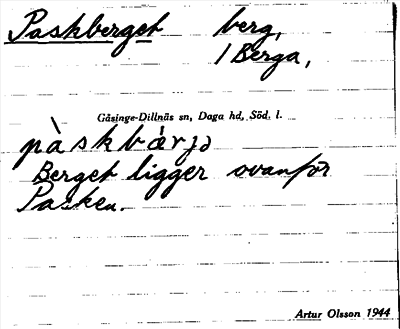 Paskberget berg,
/ Berga,
Gåsinge-Dillnäs sn, Daga hd, Söd. l.
pàskbárjə
Berget ligger ovanför
Pasken.
Artur Olsson 1944